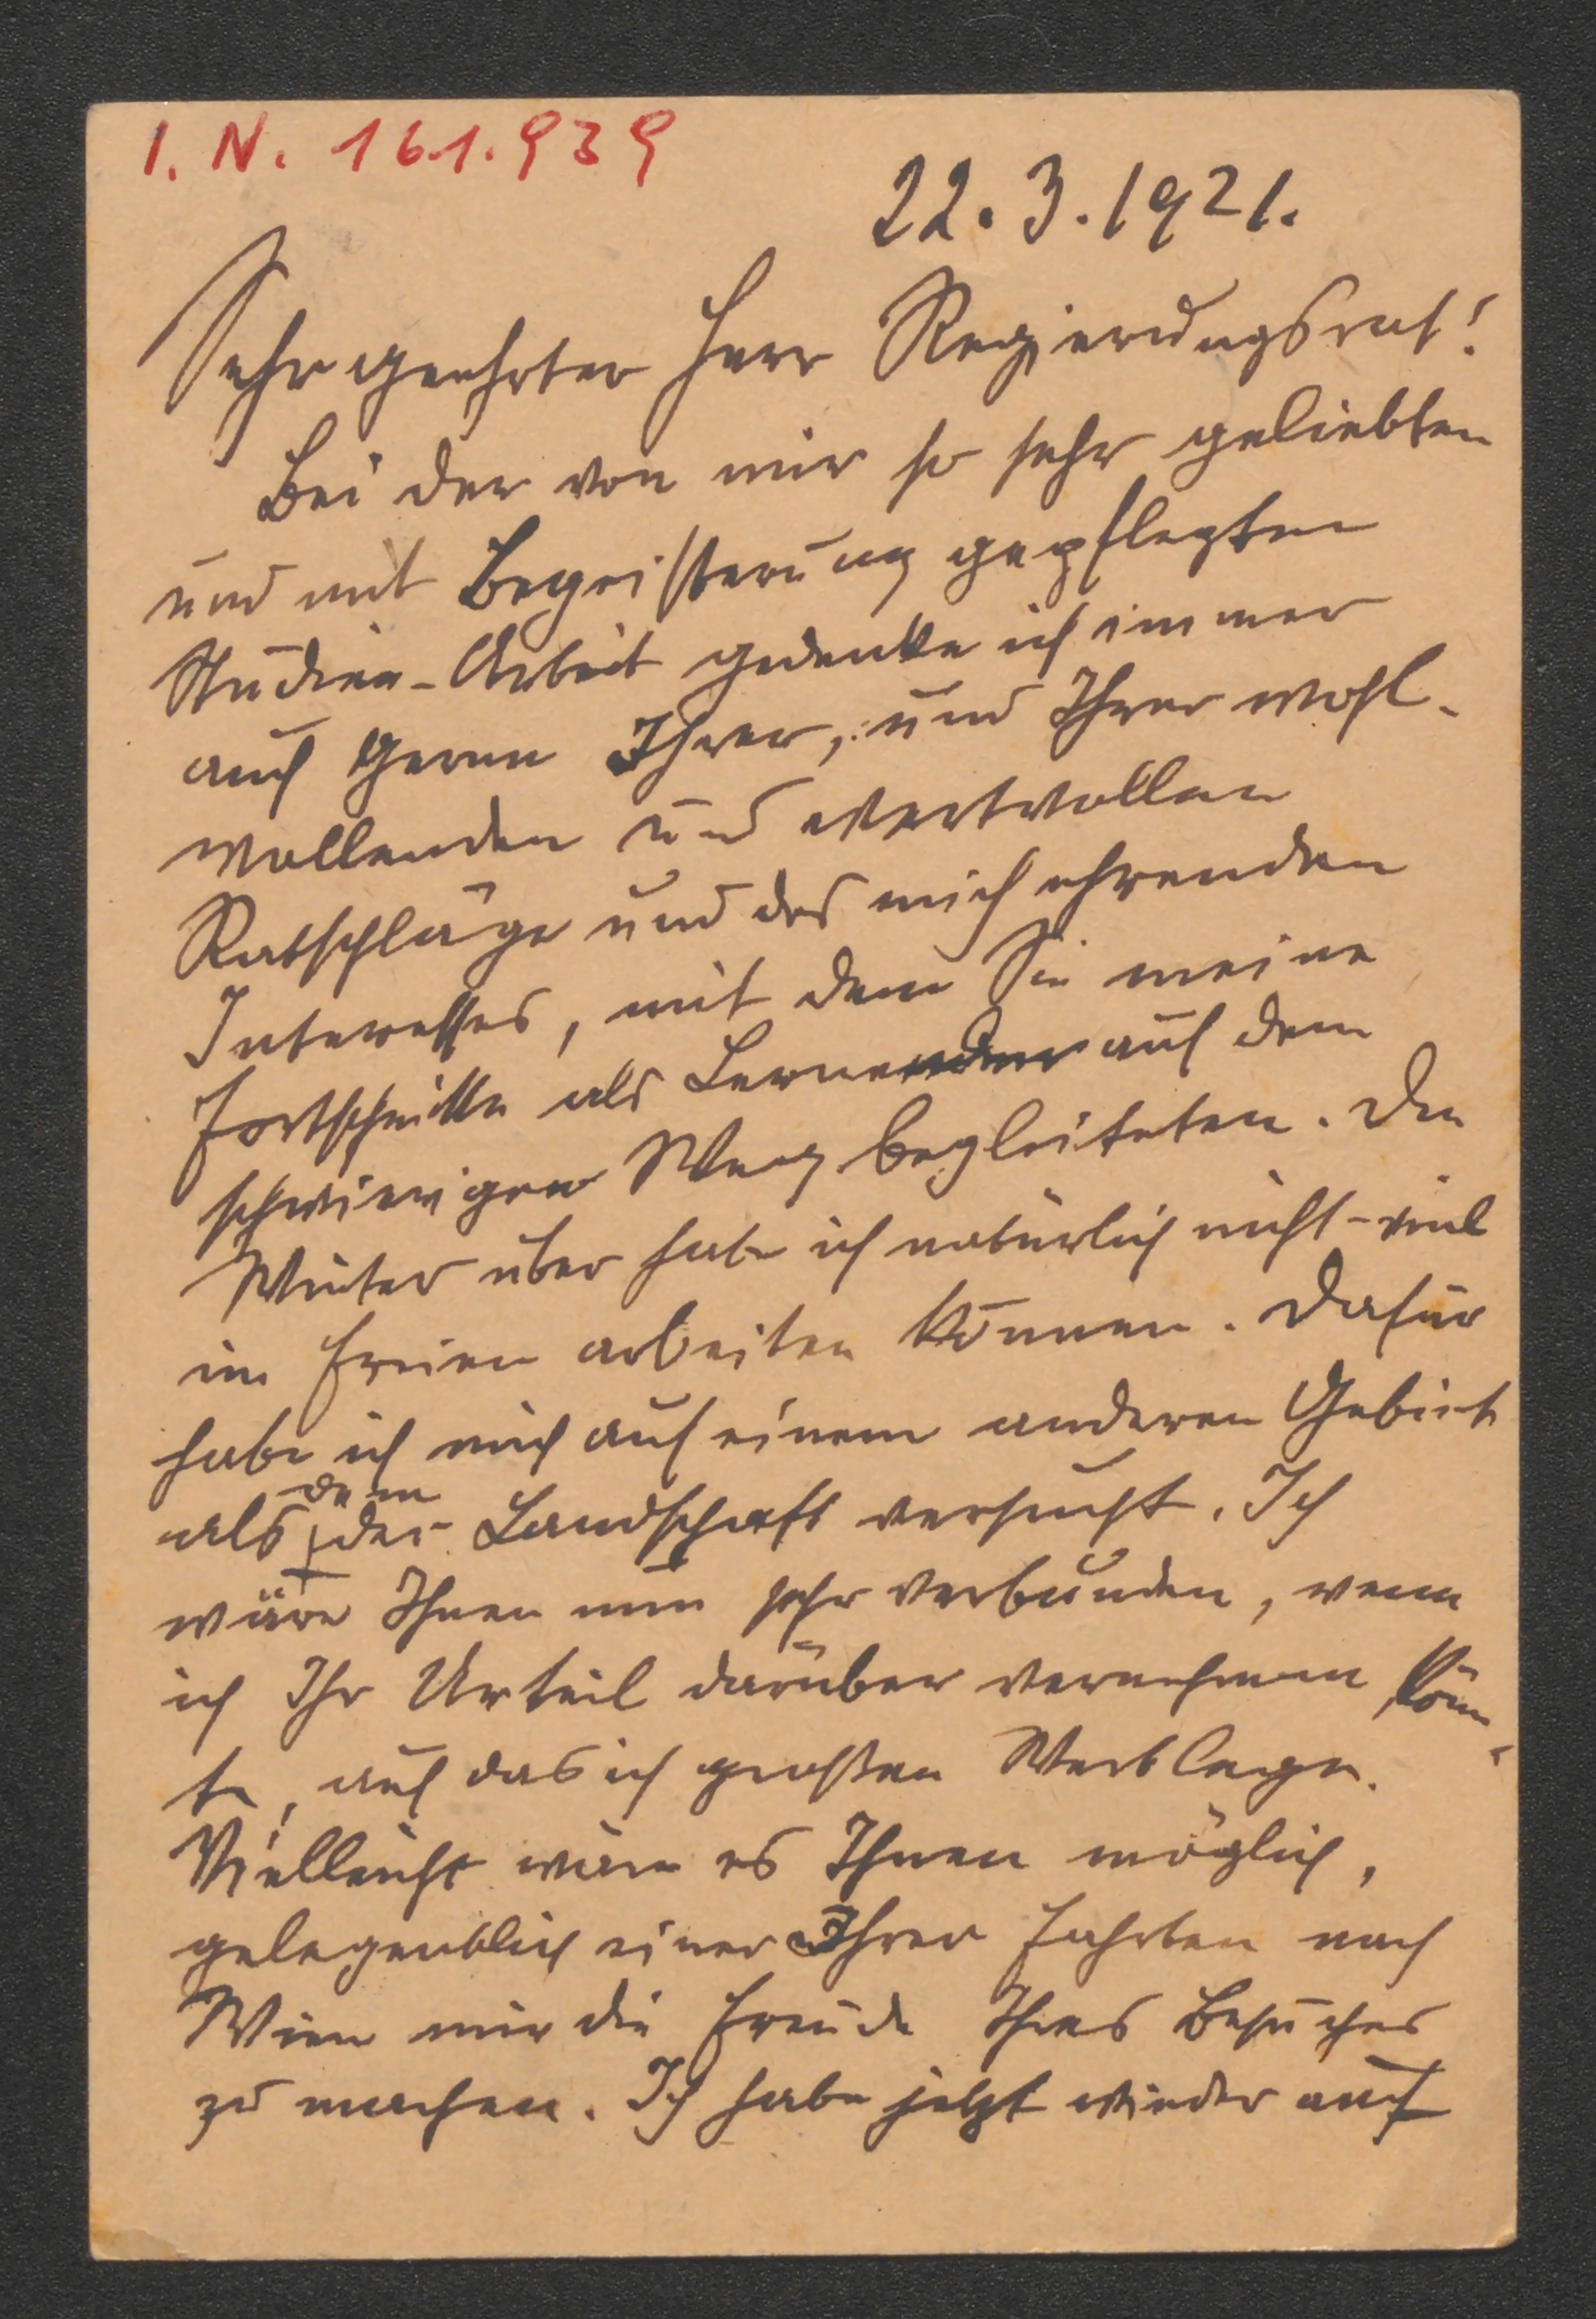 I. N. 161.939
22. 3. 1921.
Sehr geehrter Herr Regierungsrat!
Bei der von mir so sehr geliebten
und mit Begeisterung gepflegten
Studien-Arbeit gedenke ich immer
auch gerne Ihrer, und Ihrer wohl-
wollenden und wertvollen
Ratschläge und des mich ehrenden
Interesses, mit dem Sie meine
Fortschritte als Lernender auf dem
schwierigen Weg begleiteten. Den
Winter über habe ich natürlich nicht viel
im Freien arbeiten können. Dafür
habe ich mich auf einem anderen Gebiet
als dem der Landschaft versucht. Ich
wäre Ihnen nun sehr verbunden, wenn
ich Ihr Urteil darüber vernehmen könn-
te, auf das ich großen Wert lege.
Vielleicht wäre es Ihnen möglich,
gelegentlich einer Ihrer Fahrten nach
Wien mir die Freude Ihres Besuches
zu machen. Ich habe jetzt wieder auf